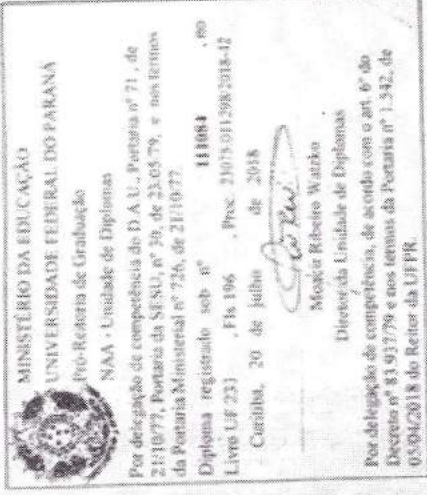 MINISTÉRIO DA EDUCAÇÃO
UNIVERSIDADE FEDERAL DO PARANÁ
Pró-Reitoria de Graduação
NAA - Unidade de Diplomas
Por delegação de competência do D.A.U., Portaria nº 71, de
21/10/77, Portaria da SESU, nº 30, de 23.05.79, e nos termos
da Portaria Ministerial nº 726, de 21/10/77.
Diploma registrado sob nº 111084, no
Livro UF 233, Fls 196, Proc.
Curitiba, 20 de julho de 2018
Moacir Ribeiro Watzko
Diretor da Unidade de Diplomas
Por delegação de competência, de acordo com o art. 6º do
Decreto nº 83.937/79 e nos termos da Portaria nº 1.342, de
05/04/2018 do Reitor da UFPR.